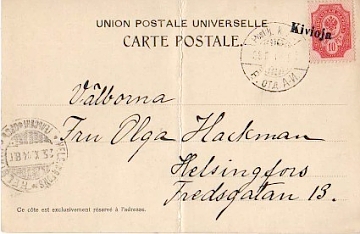 UNION POSTALE UNIVERSELLE.
CARTE POSTALE.
Kivioja
10
Välborna
Fru Olga Hackman
Helsingfors
Fredsgatan 13.
Ce côté est exclusivement réservé à l'adresse.